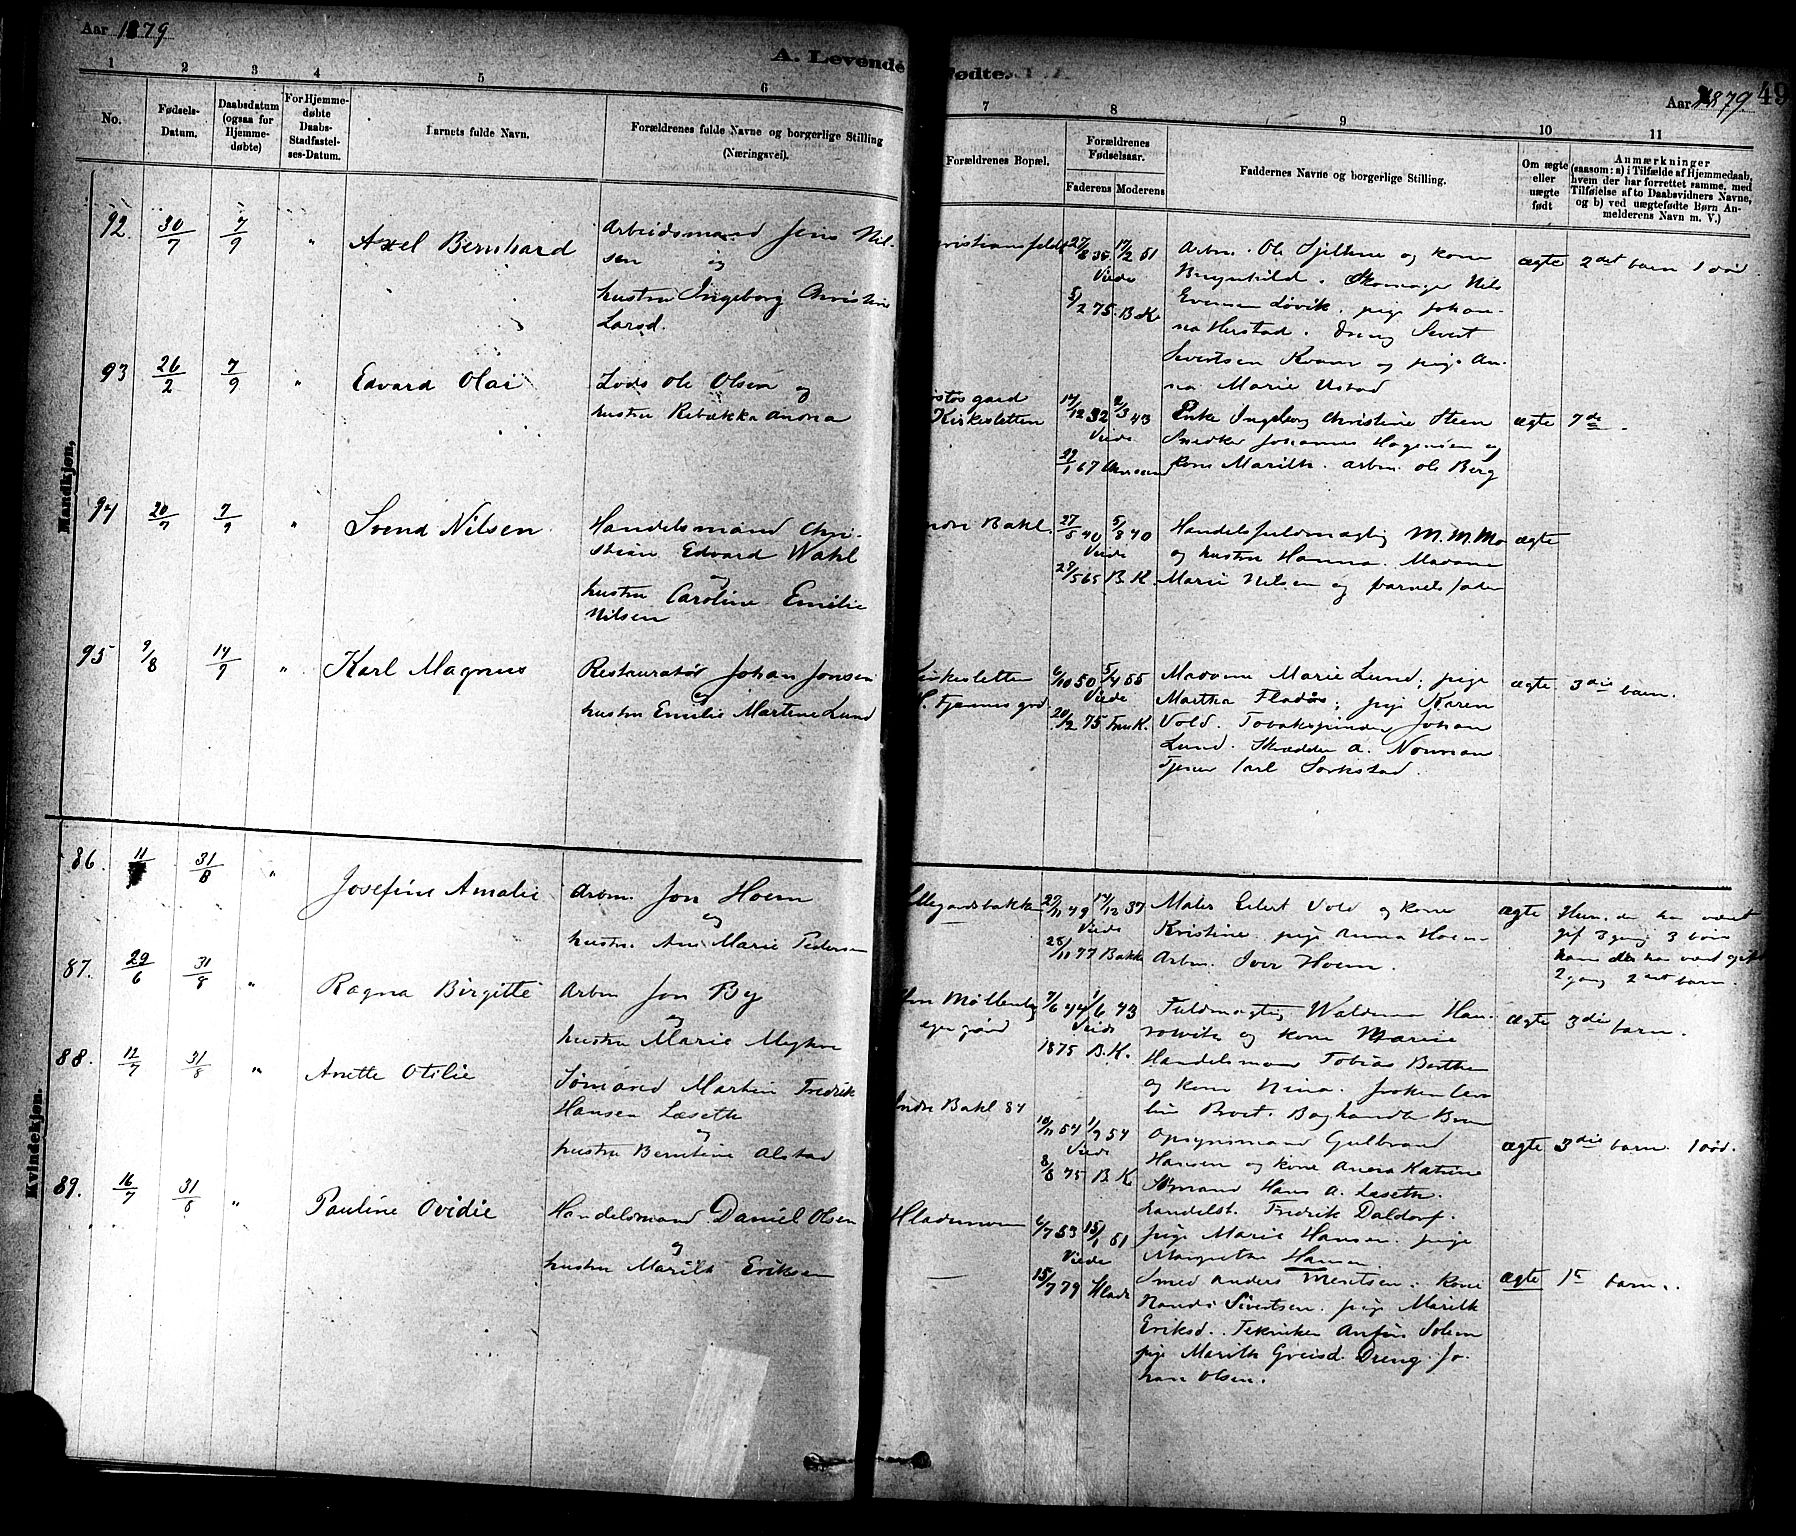 Aar 1879
A. Levende Fødte.
Aar 1879. 49
1 2 3 4 5 6 7 8 9 10 11
No.
Fødsels-Datum.
Daabsdatum (ogsaa for Hjemmedøbte)
For Hjemmedøbte Daabs-Stadfastelses-Datum.
Barnets fulde Navn.
Forældrenes fulde Navne og borgerlige Stilling
(Næringsvei).
Forældrenes Bopæl.
Forældrenes Fødselsaar.
Faderens Moderens
Faddernes Navne og borgerlige Stilling.
Om ægte eller uægte født
Anmærkninger
(saasom: a) i Tilfælde af Hjemmedaab,
hvem der har forrettet samme, med
Tilføielse af to Daabsvidners Navne,
og b) ved uægtefødte Børn Anmelderens Navn m. V.)
Mandkjøn.
92. 30/7 7/9 " Axel Bernhard
Arbeidsmand Jens Nilsen
og
hustru Ingeborg Christine
Larsd.
27/6 35 17/2 51
Viede
5/2 75. B.K.
Arbm. Ole Sjiltne og kone
Brynhild. Skomager Nils
Evensen Løvik. pige Johanna
Herstad. Dreng Sivert
Sivertsen Kvam og pige Anna
Marie Ustad
ægte 2det barn 1 død.
93 26/2 7/9 " Edvard Olai
Lods Ole Olsen og
hustru Rebækka Anna
Kirkesletten
17/12 32 2/3 43
Viede
29/1 67
Enke Ingeborg Christine Steen
Snedker Johannes Hagensen og
kone Marith. arbm. Ole Berg
ægte 7de
94 20/7 7/9 " Svend Nilsen
Handelsmand Christian
Edvard Wahl
og
hustru Caroline Emilie
Nilsen
Indre Bakl.
27/5 40 5/8 40
Viede
29/5 65 B.K.
Handelsfuldmægtig M. M. Mo
og hustru Hanna. Madame
Marie Nilsen og barnets fader
ægte
95 9/8 14/9 " Karl Magnus
Restauratør Johan Jonsen
og
hustru Emilie Martine Lund
Kirkesletten
6/10 50 5/4 55
Viede
20/2 75 Fru K.
Madame Marie Lund; pige
Martha Fladås; pige Karen
Vold. Tobakspinder Johan
Lund. Skrædder A. Norman
Tjener Carl Sorkstad.
ægte 3die barn.
Kvindekjøn.
86. 11/ 31/8 " Josefine Amalie
Arbm. Jon Hoem
og
hustru Ane Marie Pedersen
27/11 49 17/12 37
Viede
28/11 77 Bakke
Maler Eilert Vold og kone
Kristine. pige Anna Hoem
Arbm. Iver Hoem.
ægte Hun, der har været
gif 3 gang 3 børn
ham der har vært gift
2 gang 2det barn.
87. 29/6 31/8 " Ragna Birgitte
Arbm Jon By
og
hustru Marie
7/6 44 1/6 43
Viede
1875 B.K.
Fuldmægtig Waldemar
og kone Marie
Handelsmand Tobias Berthen
og kone Nina.
ægte 3die barn.
88. 12/7 31/8 " Anette Otilie
Sømand Martin Fredrik
Hansen Læseth
og
hustru Berntine Alstad
Indre Bakl 84
10/11 54 1/9 54
Viede
8/8 75 B.K
Opsynsmand Gulbrand
Hansen og kone Anna Katrine
Sømand Hans A. Læseth.
Landelst. Fredrik Daldorf.
pige Marie Hansen. pige
Margrethe Hansen
ægte 3die barn. 1 død.
89. 16/7 31/8 " Pauline Ovidie
Handelsmand Daniel Olsen
og
hustru Marith Eriksen
Hlademoen
6/7 53 15/1 51
Viede
15/7 79 Hlade
Smed Anders Mentsen. kone
Randi Sivertsen. pige Marith
Eriksd. Tekniker Anfin Solem
pige Marith Greisd. Dreng Johan
Olsen.
ægte 1te barn.